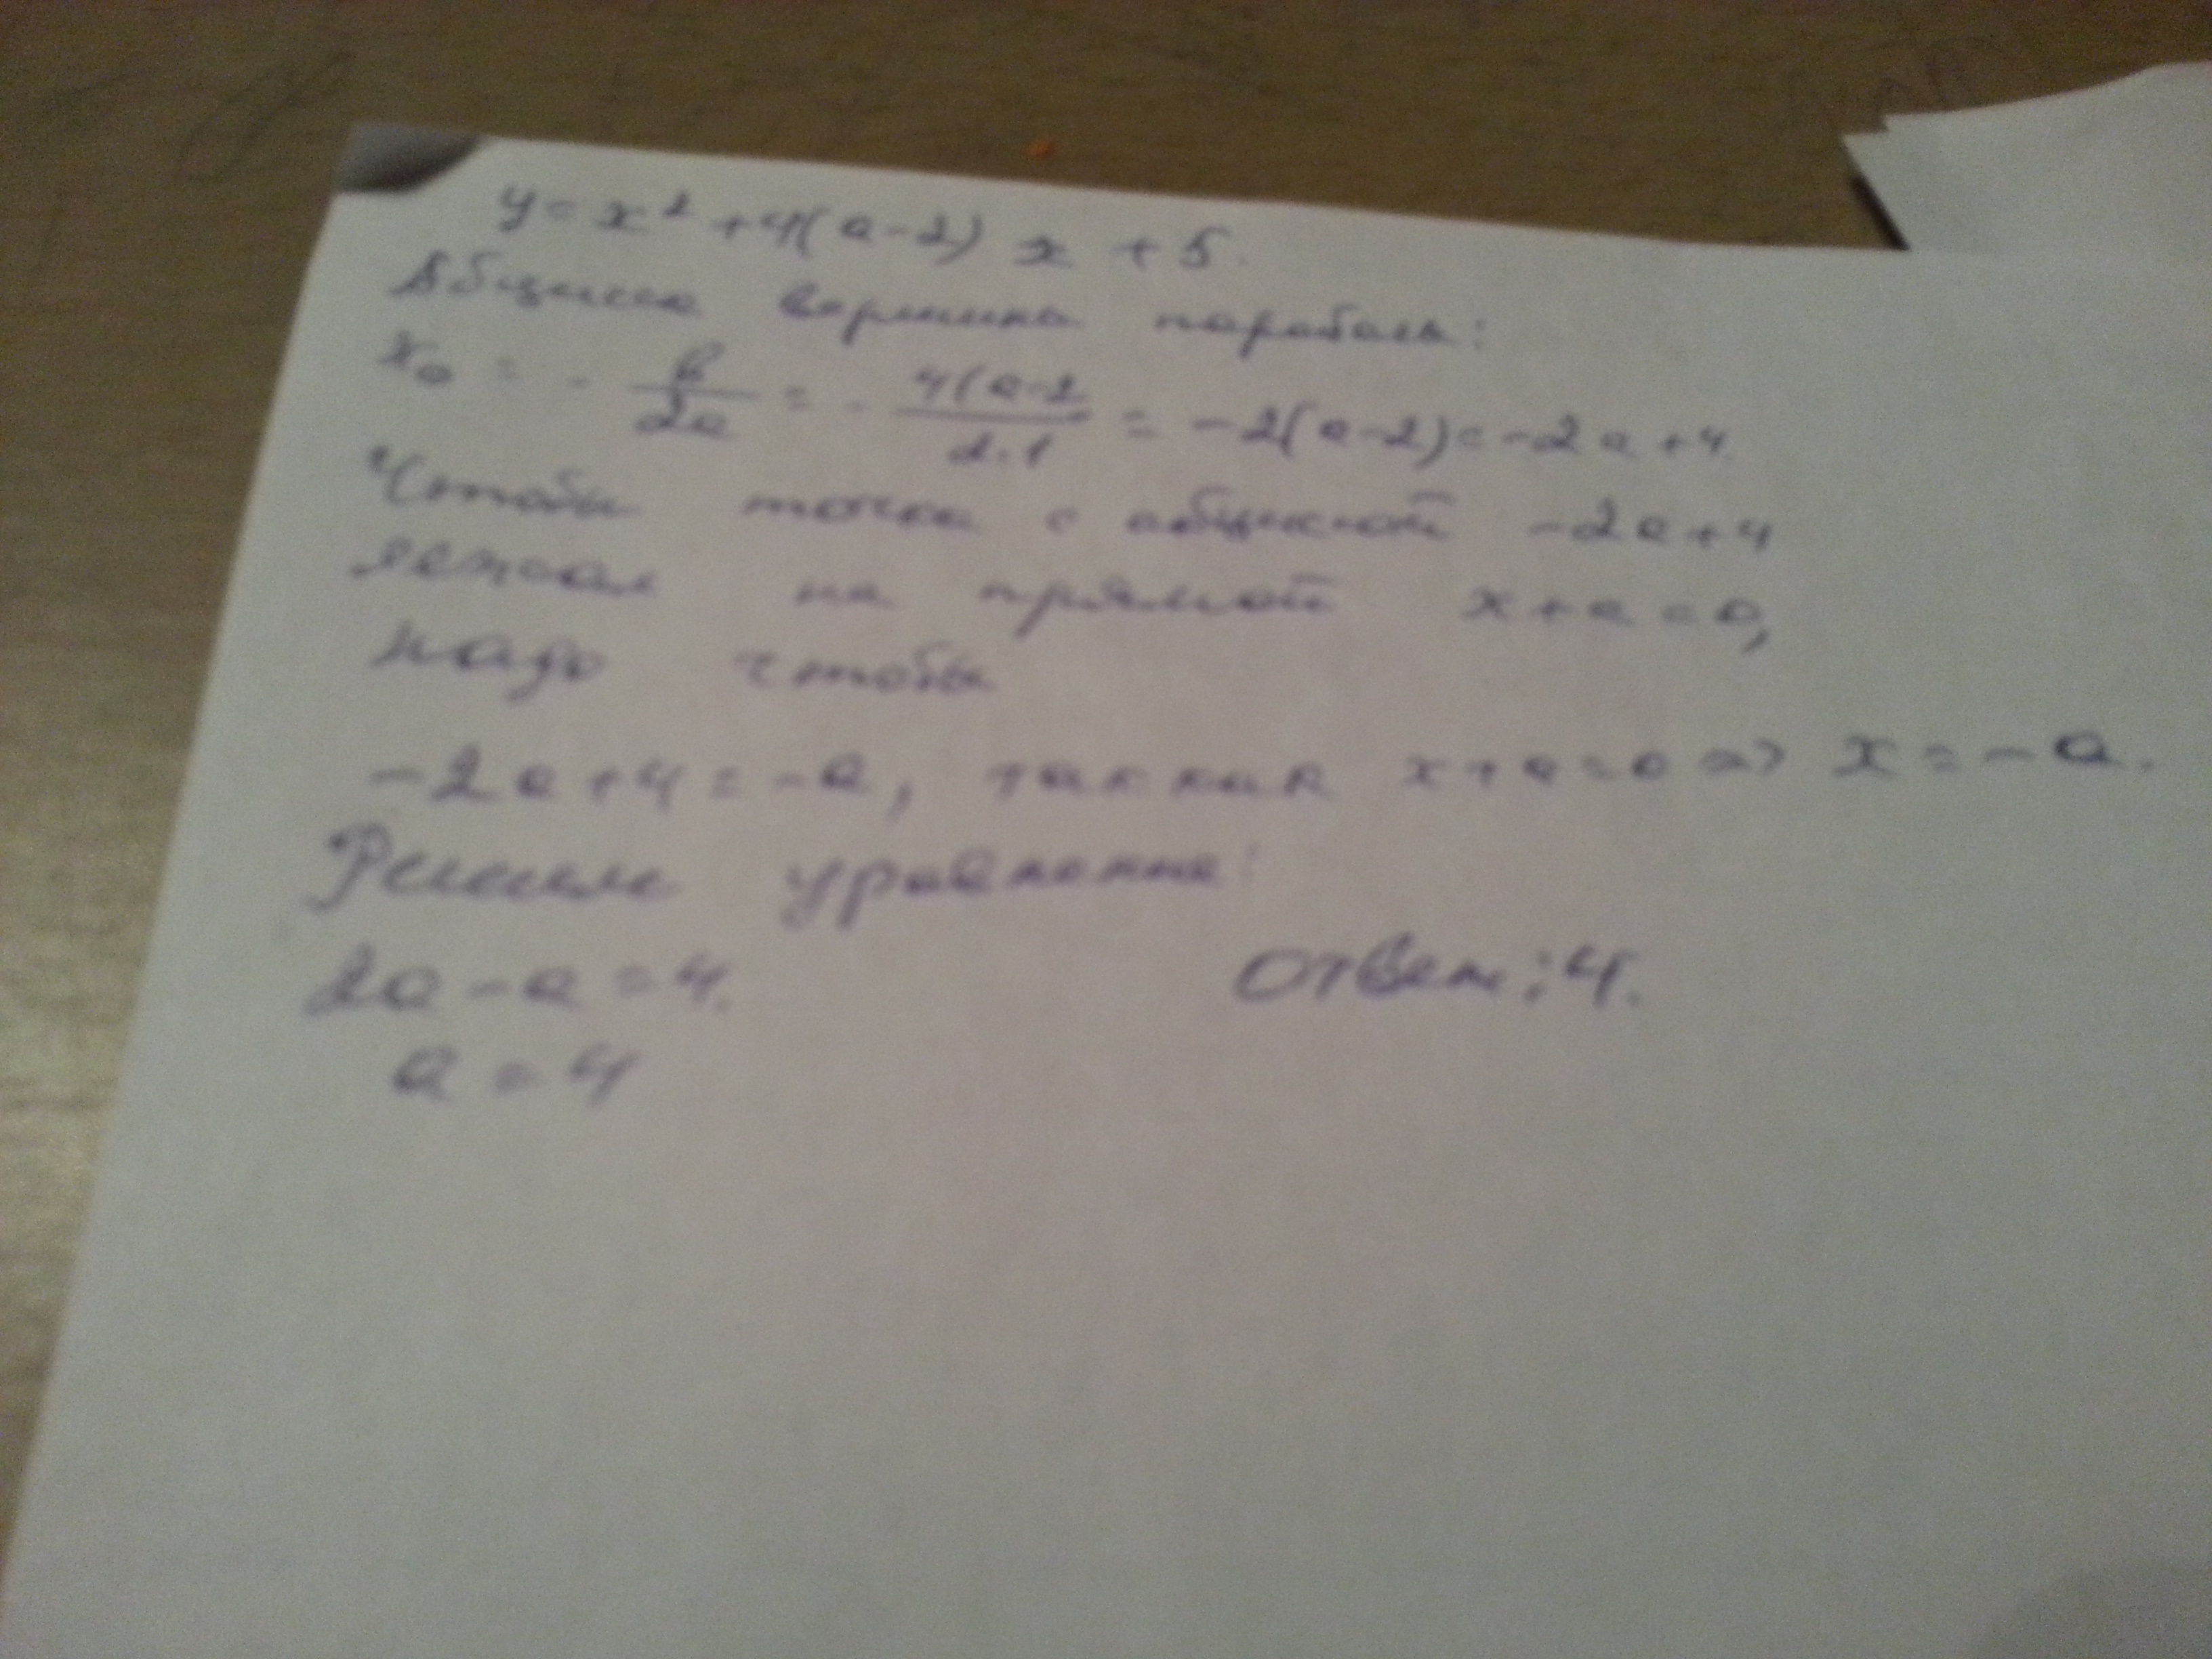 y = x² + 4(a-2) x + 5.
Абцисса вершины параболы:
x₀ = - в/2a = - 4(a-2/2·1 = -2(a-2) = -2a+4.
Чтобы точка с абциссой -2a+4
лежала на прямой x+a=0,
надо чтобы
-2a+4 = -a, так как x+a=0 => x = -a.
Решим уравнение:
2a - a = 4.
Ответ: 4.
a = 4